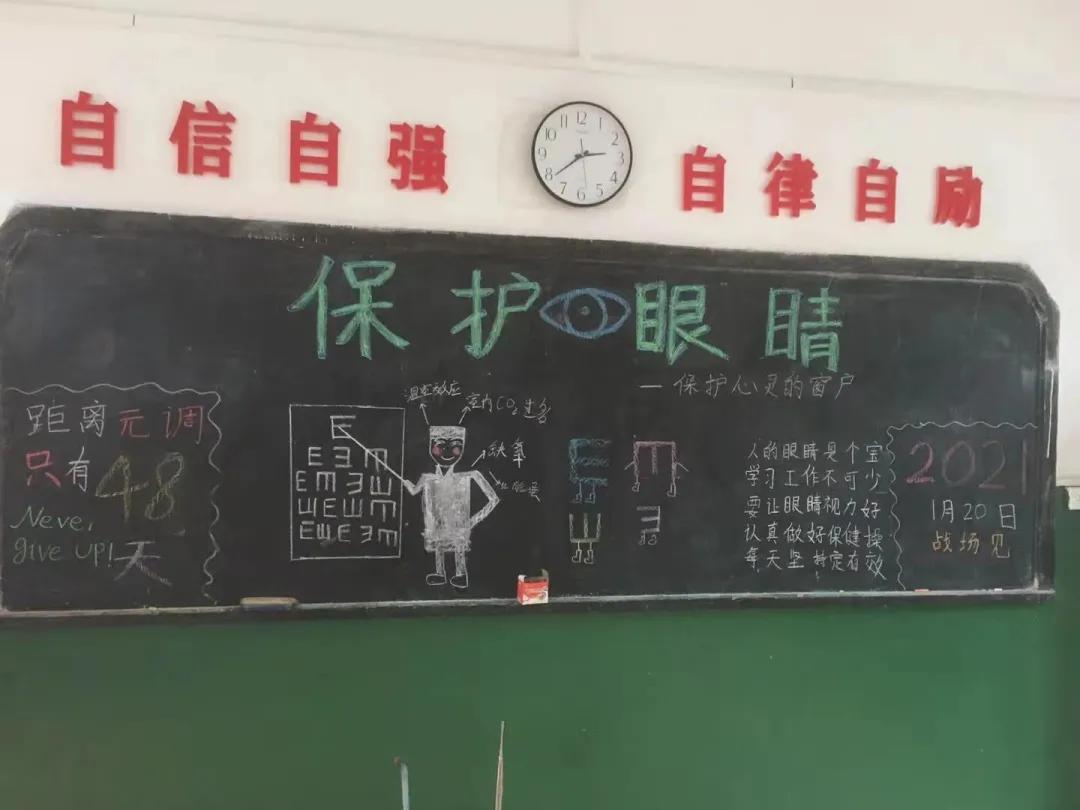 自信自强
自律自励
12
1
2
3
4
5
6
7
8
9
10
11
保护眼睛
一保护心灵的窗户
距离元调
只有48
天
Never
give up!
温室效应
室内CO₂过多
缺氧
E
E Ǝ M
E M Ǝ Ш
Ш E Ш M
E Ш E Ǝ M
E
M
Ш
Ǝ
人的眼睛是个宝
学习工作不可少
要让眼睛视力好
认真做好保健操
每天坚持定有效
2021
1月20日
战场见